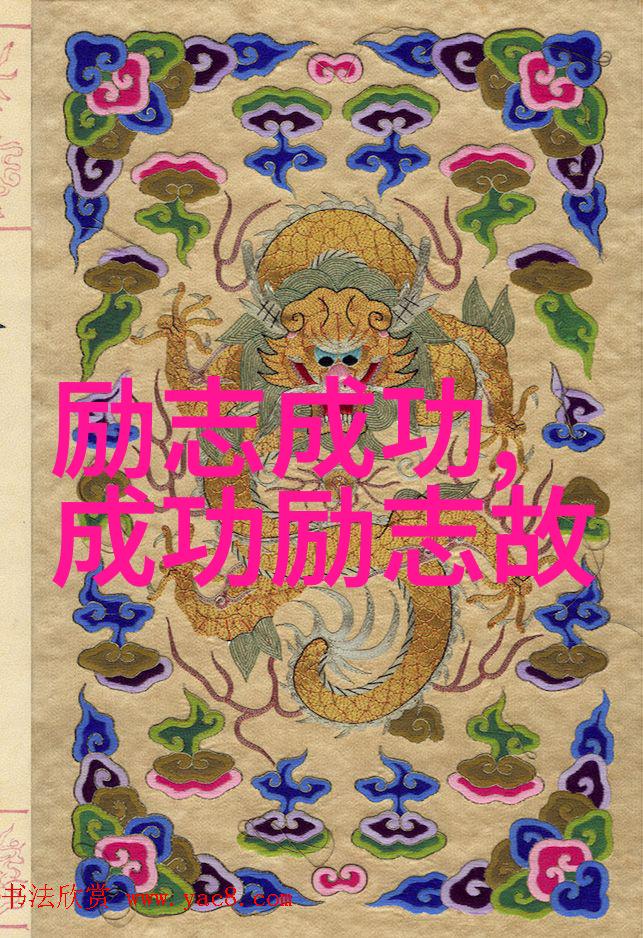 励志成功,
成功励志故
书法欣赏 www.yac8.com